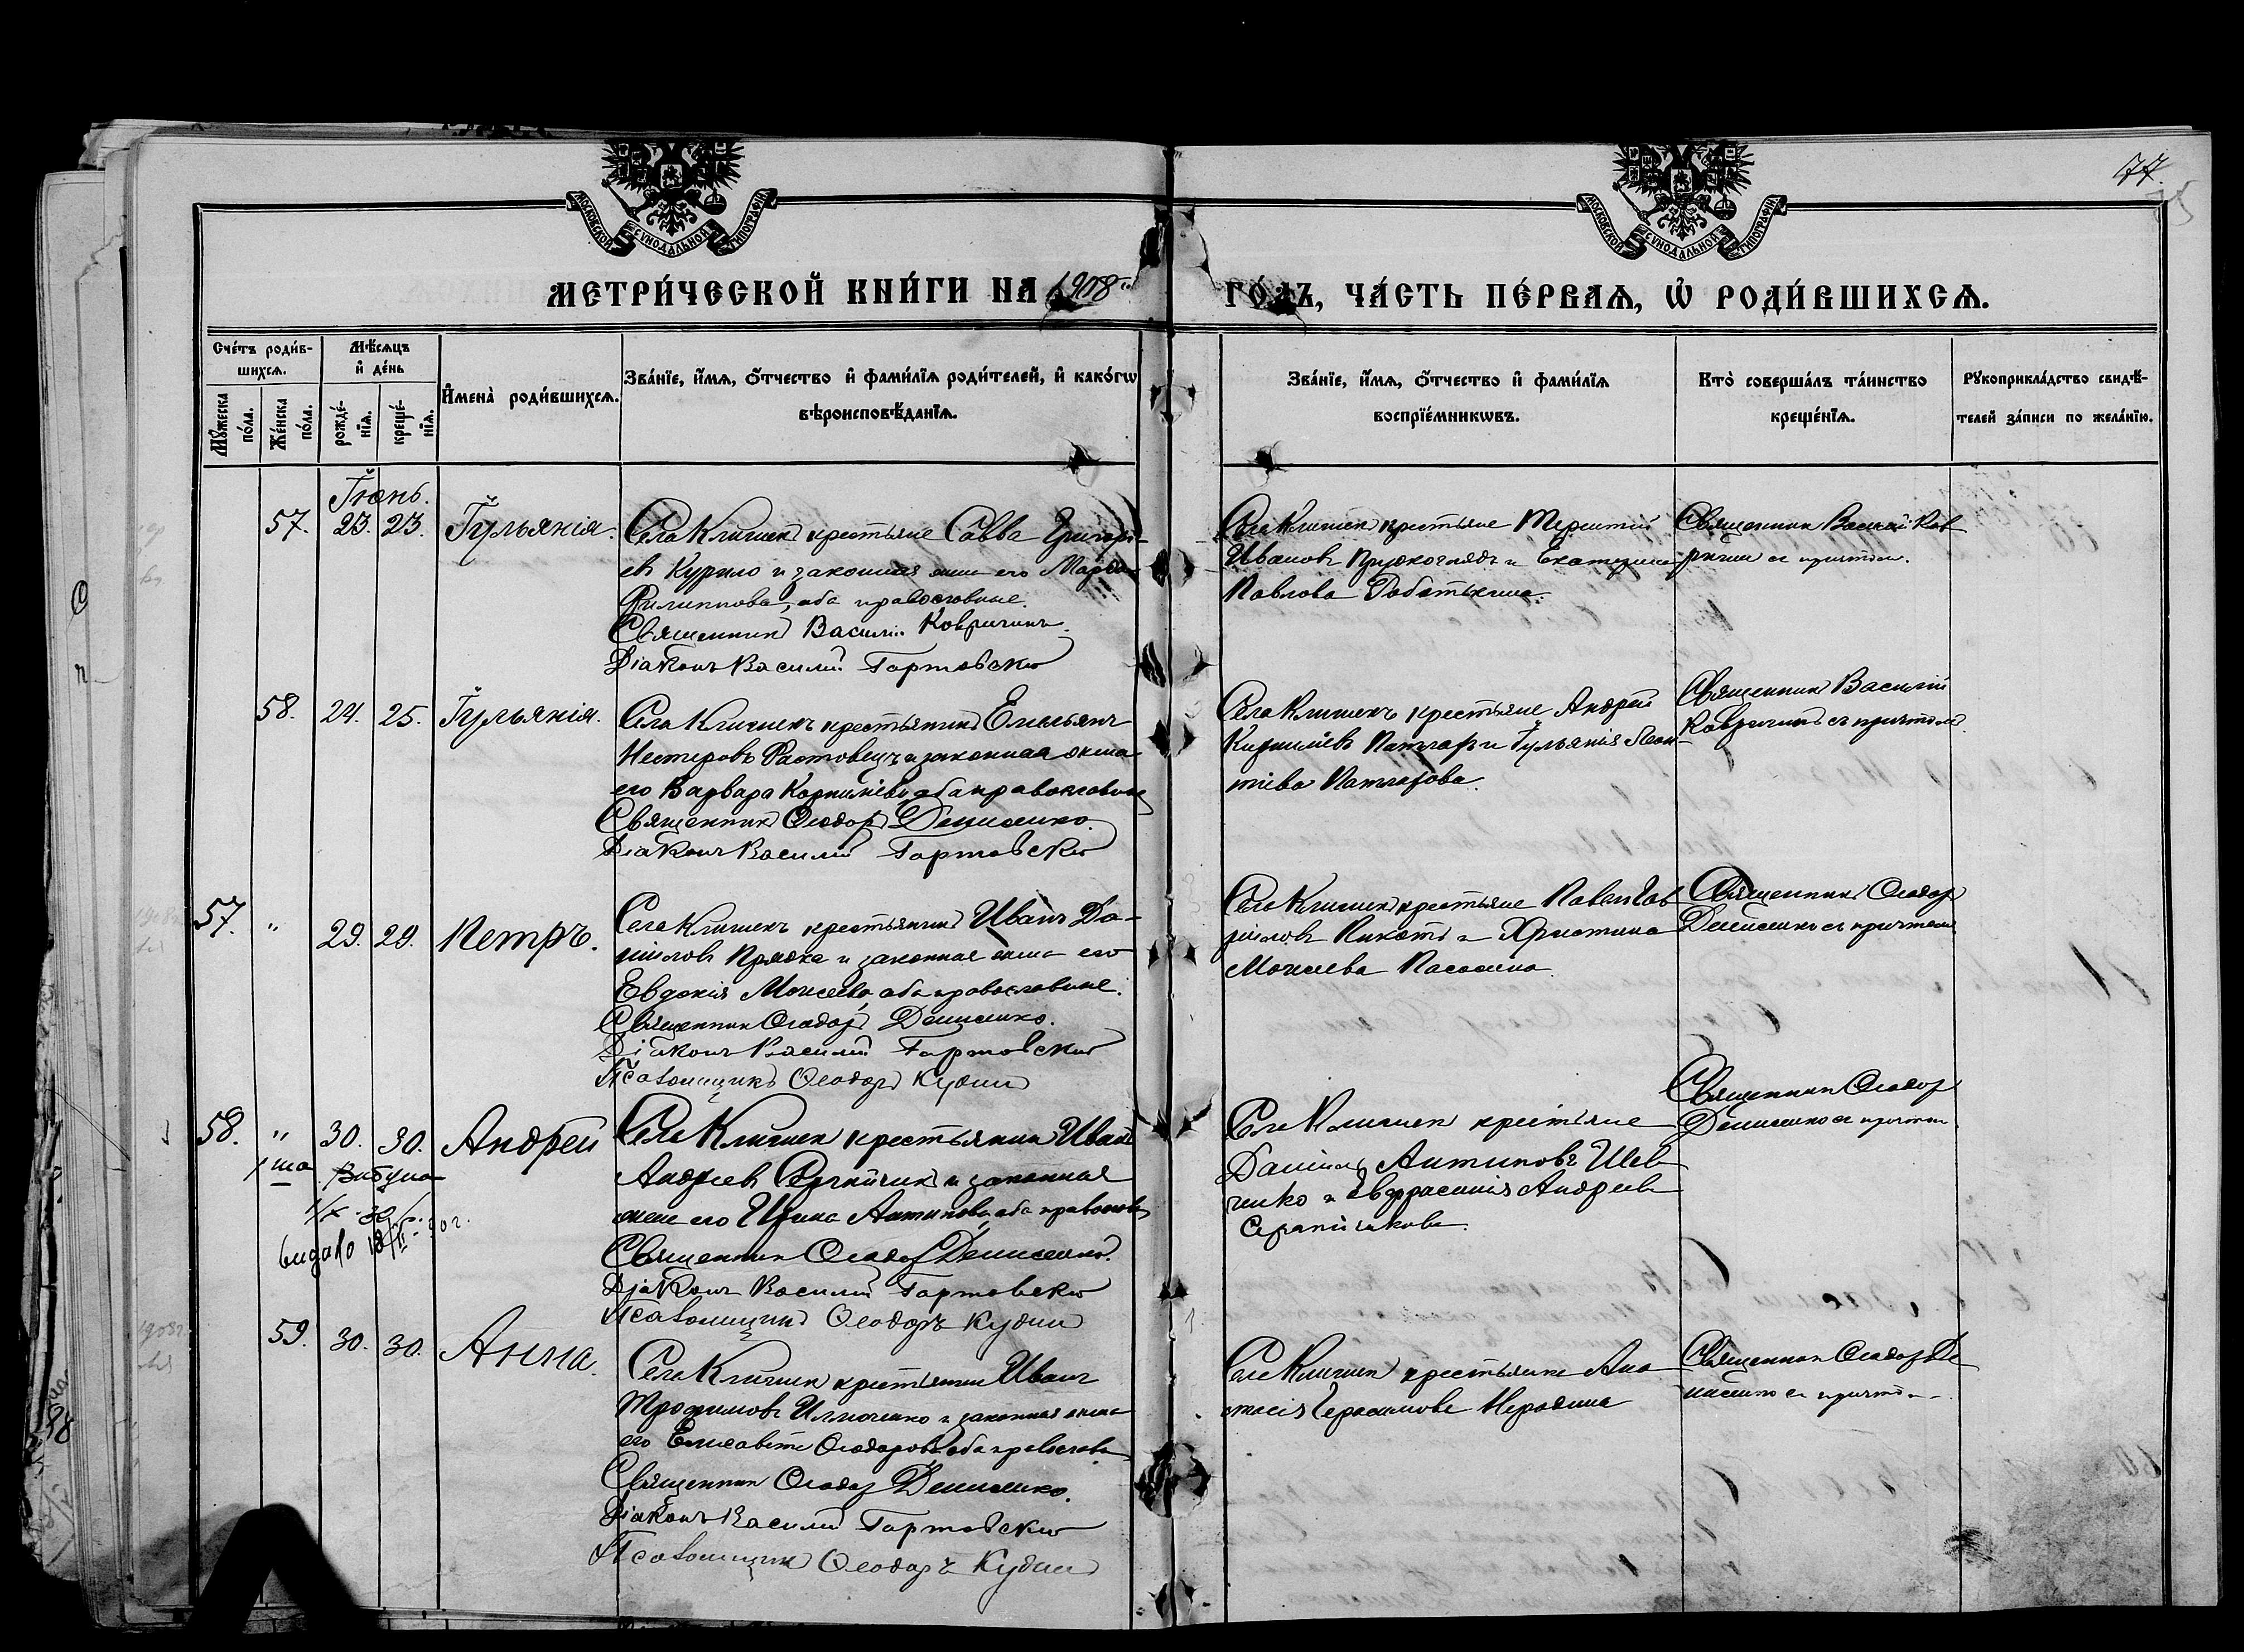 77.
МОСКОВСКОЙ СУНОДАЛЬНОЙ ТИПОГРАФІИ
МОСКОВСКОЙ СУНОДАЛЬНОЙ ТИПОГРАФІИ
МЕТРИ́ЧЕСКОЙ КНИ́ГИ НА 1908 ГО́ДЪ, ЧА́СТЬ ПЕ́РВАѦ, Ѽ РОДИ́ВШИХСѦ.
Сче́тъ роди́в-
шихсѧ.
Мꙋ́жеска
по́ла.
Же́нска
по́ла.
Мѣ́сѧцъ
и҆ де́нь
рожде́-
нїѧ.
креще́-
нїѧ.
И҆мена̀ роди́вшихсѧ.
Зва́нїе, и҆́мѧ, ѻ҆́тчество и҆ фами́лїѧ роди́телей, и҆ како́гѡ
вѣроисповѣ́данїѧ.
Зва́нїе, и҆́мѧ, ѻ҆́тчество и҆ фами́лїѧ
воспрїе́мникѡвъ.
Кто̀ соверша́лъ та́инство
креще́нїѧ.
Рꙋкоприкла́дство свидѣ́-
телей за́писи по жела́нїю.
Іюнь.
57. 23. 23. Іульянія.
Села Клишекъ крестьяне Савва Григорі-
евъ Курило и законная жена его Марѳа
Филиппова, оба православные.
Священникъ Василій Ковригинъ.
Діаконъ Василій Гортовскій
Села Клишекъ крестьяне Терентій
Ивановъ и Екатерина
Павлова
Священникъ Василій Ков
ригинъ съ причтом.
58. 24. 25. Іульянія.
Села Клишекъ крестьянинъ Емельянъ
Нестеровъ Ростовецъ и законная жена
его Варвара Корниліева, оба православные
Священникъ Ѳеодоръ Денисенко.
Діаконъ Василій Гортовскій
Села Клишекъ крестьяне Андрей
Кирилліевъ и Іульянія Леон-
тіева
Священникъ Василій
Ковригинъ съ причтомъ.
57. " 29. 29. Петръ.
Села Клишекъ крестьянинъ Иванъ Да-
ніиловъ Прядка и законная жена его
Евдокія Моисеева, оба православные.
Священникъ Ѳеодоръ Денисенко.
Діаконъ Василій Гортовскій
Псаломщикъ Ѳеодоръ Кудин
Села Клишекъ крестьяне Павелъ Гав
ріиловъ и Христина
Моисеева
Священникъ Ѳеодоръ
Денисенко съ причтомъ
58. " 30. 30. Андрей
Села Клишекъ крестьянинъ Иванъ
Андреевъ и законная
жена его Ирина Антипова, оба православн
Священникъ Ѳеодоръ Денисенко.
Діаконъ Василій Гортовскій
Псаломщикъ Ѳеодоръ Кудин
видано
Села Клишекъ крестьяне
Даніилъ Антиповъ Шев
ченко и Евфрасинія Андреева
Священникъ Ѳеодоръ
Денисенко съ причтом
59. 30. 30. Анна.
Села Клишекъ крестьянинъ Иванъ
Трофимовъ и законная жена
его Елисавета Ѳеодорова, оба православн
Священникъ Ѳеодоръ Денисенко.
Діаконъ Василій Гортовскій
Псаломщикъ Ѳеодоръ Кудин
Села Клишекъ крестьянка Ана
стасія Герасимова
Священникъ Ѳеодоръ Де
нисенко съ причтом